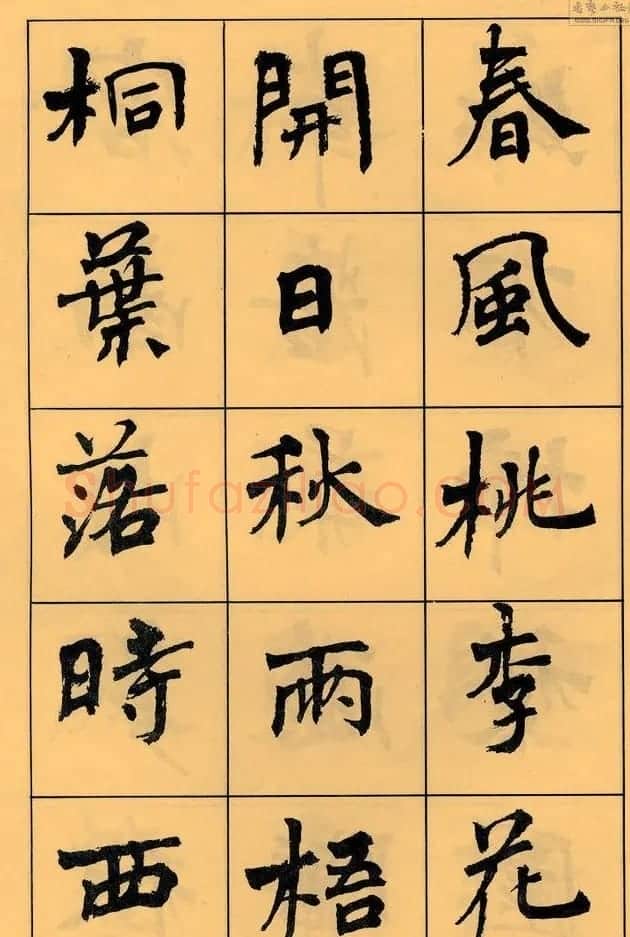 春風桃李花
開日秋雨梧
桐葉落時西
Shufaziliao.COM